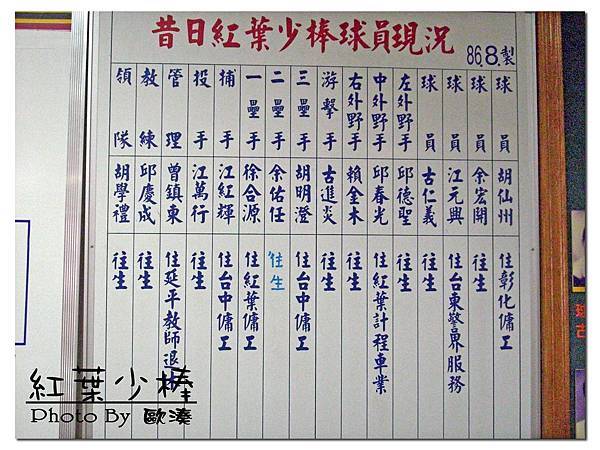 昔日紅葉少棒球員現況
86.8.製
球員 胡仙州 住彰化傭工
球員 余宏開 往生
球員 江元興 住台東警界服務
球員 古仁義 往生
左外野手 邱德聖 往生
中外野手 邱春光 住紅葉計程車業
右外野手 賴金木 往生
游擊手 古進炎 往生
三壘手 胡明澄 住台中傭工
二壘手 余佑任 往生
一壘手 徐合源 住紅葉傭工
捕手 江紅輝 住台中傭工
投手 江萬行 往生
管理 曾鎮東 住延平教師退休
教練 邱慶成 往生
領隊 胡學禮 往生
紅葉少棒
Photo By 歐湊